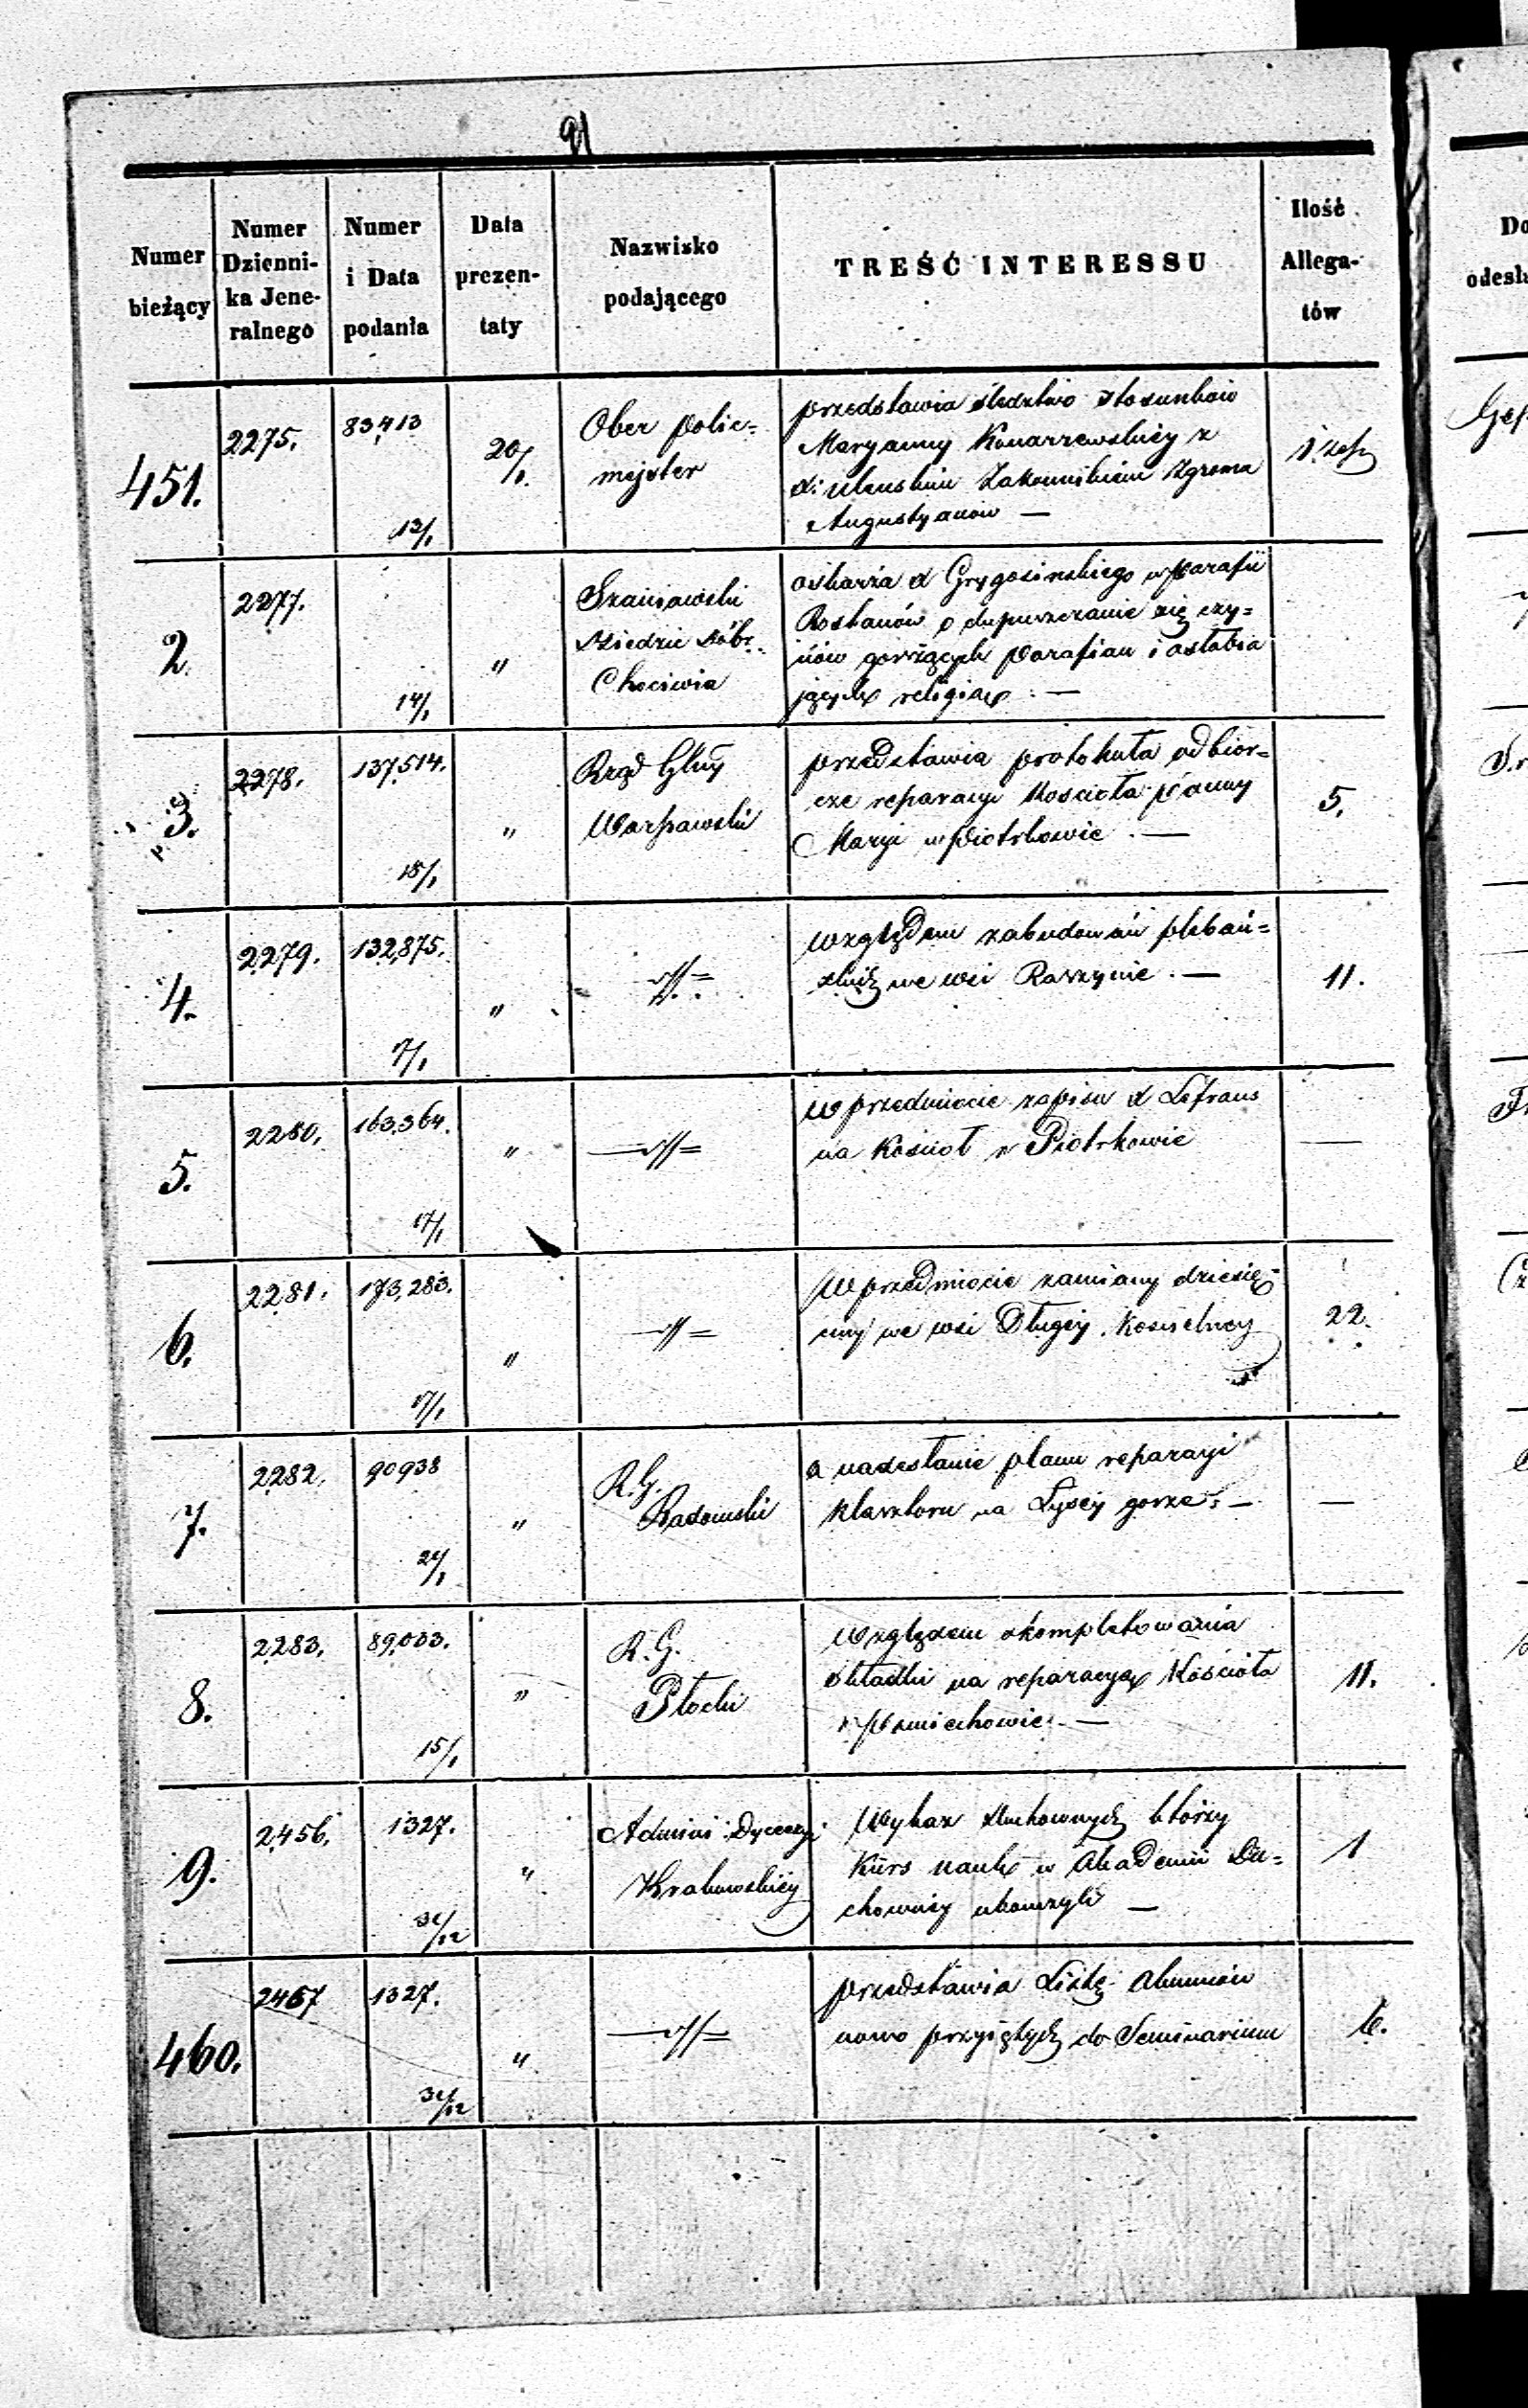 91
Numer bieżący | Numer Dziennika Jeneralnego | Numer i Data podania | Data prezentaty | Nazwisko podającego | TREŚĆ INTERESSU | Ilość Allegatów
451. | 2275. | 83413 13/1 | 20/1. | Ober polic=
mejster | przedstawia śledztwo stosunków
Maryanny Konarzewskiéy z
Zakonnikiem Zgroma
Augustyanów —
2. | 2277. | 14/1 | " | Szaniawski
Dziedzic Dóbr
Chociwia | oskarża X Grygosinskiego w parafii
o dopuszczanie się czy=
nów gorszących parafian i osłabia
jących religią —
3. | 2278. | 137,514. 18/1 | " | Rząd Gbny
Warszawski | przedstawia protokuła odbior=
cze reparacyi Kościoła Panny
Maryi w Piotrkowie — | 5.
4. | 2279. | 132,875. 17/1 | " | —//= | względem zabudowań plebań=
skich we wsi Raszynie. — | 11.
5. | 2280. | 163,364. 17/1 | " | —//= | w przedmiocie zapisu X Lefrans
na Kościoł w Piotrkowie | —
6. | 2281. | 173,283. 17/1 | " | —//= | w przedmiocie zamiany dziesię=
ciny we wsi Długiéy Kościelnéy | 22.
7. | 2282. | 90938 | " | R. G.
Radomski | o nadesłanie planu reparacyi
klasztoru na Łyséy gorze: — | —
8. | 2283. | 89,033. 15/1 | " | R. G.
Płocki | względem skompletowania
składki na reparacyą Kościoła
— | 11.
9. | 2456. | 1327. 31/12 | " | Admini: Dyecezyi
Krakowskiéy | Wykaz Duchownych którzy
Kurs nauk w Akademii Du=
chownéy ukończyli — | 1
460. | 2457 | 1327. 31/12 | " | —//= | przedstawia Listę Alumnów
nowo przyiętych do Seminarium | 6.